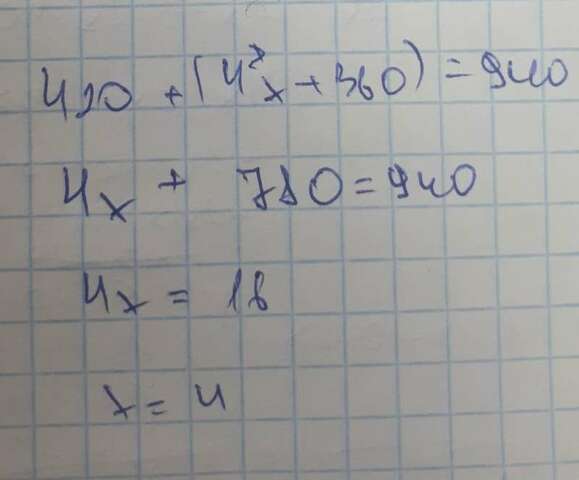 420 + (4²x + 360) = 940
4x + 780 = 940
4x = 16
x = 4